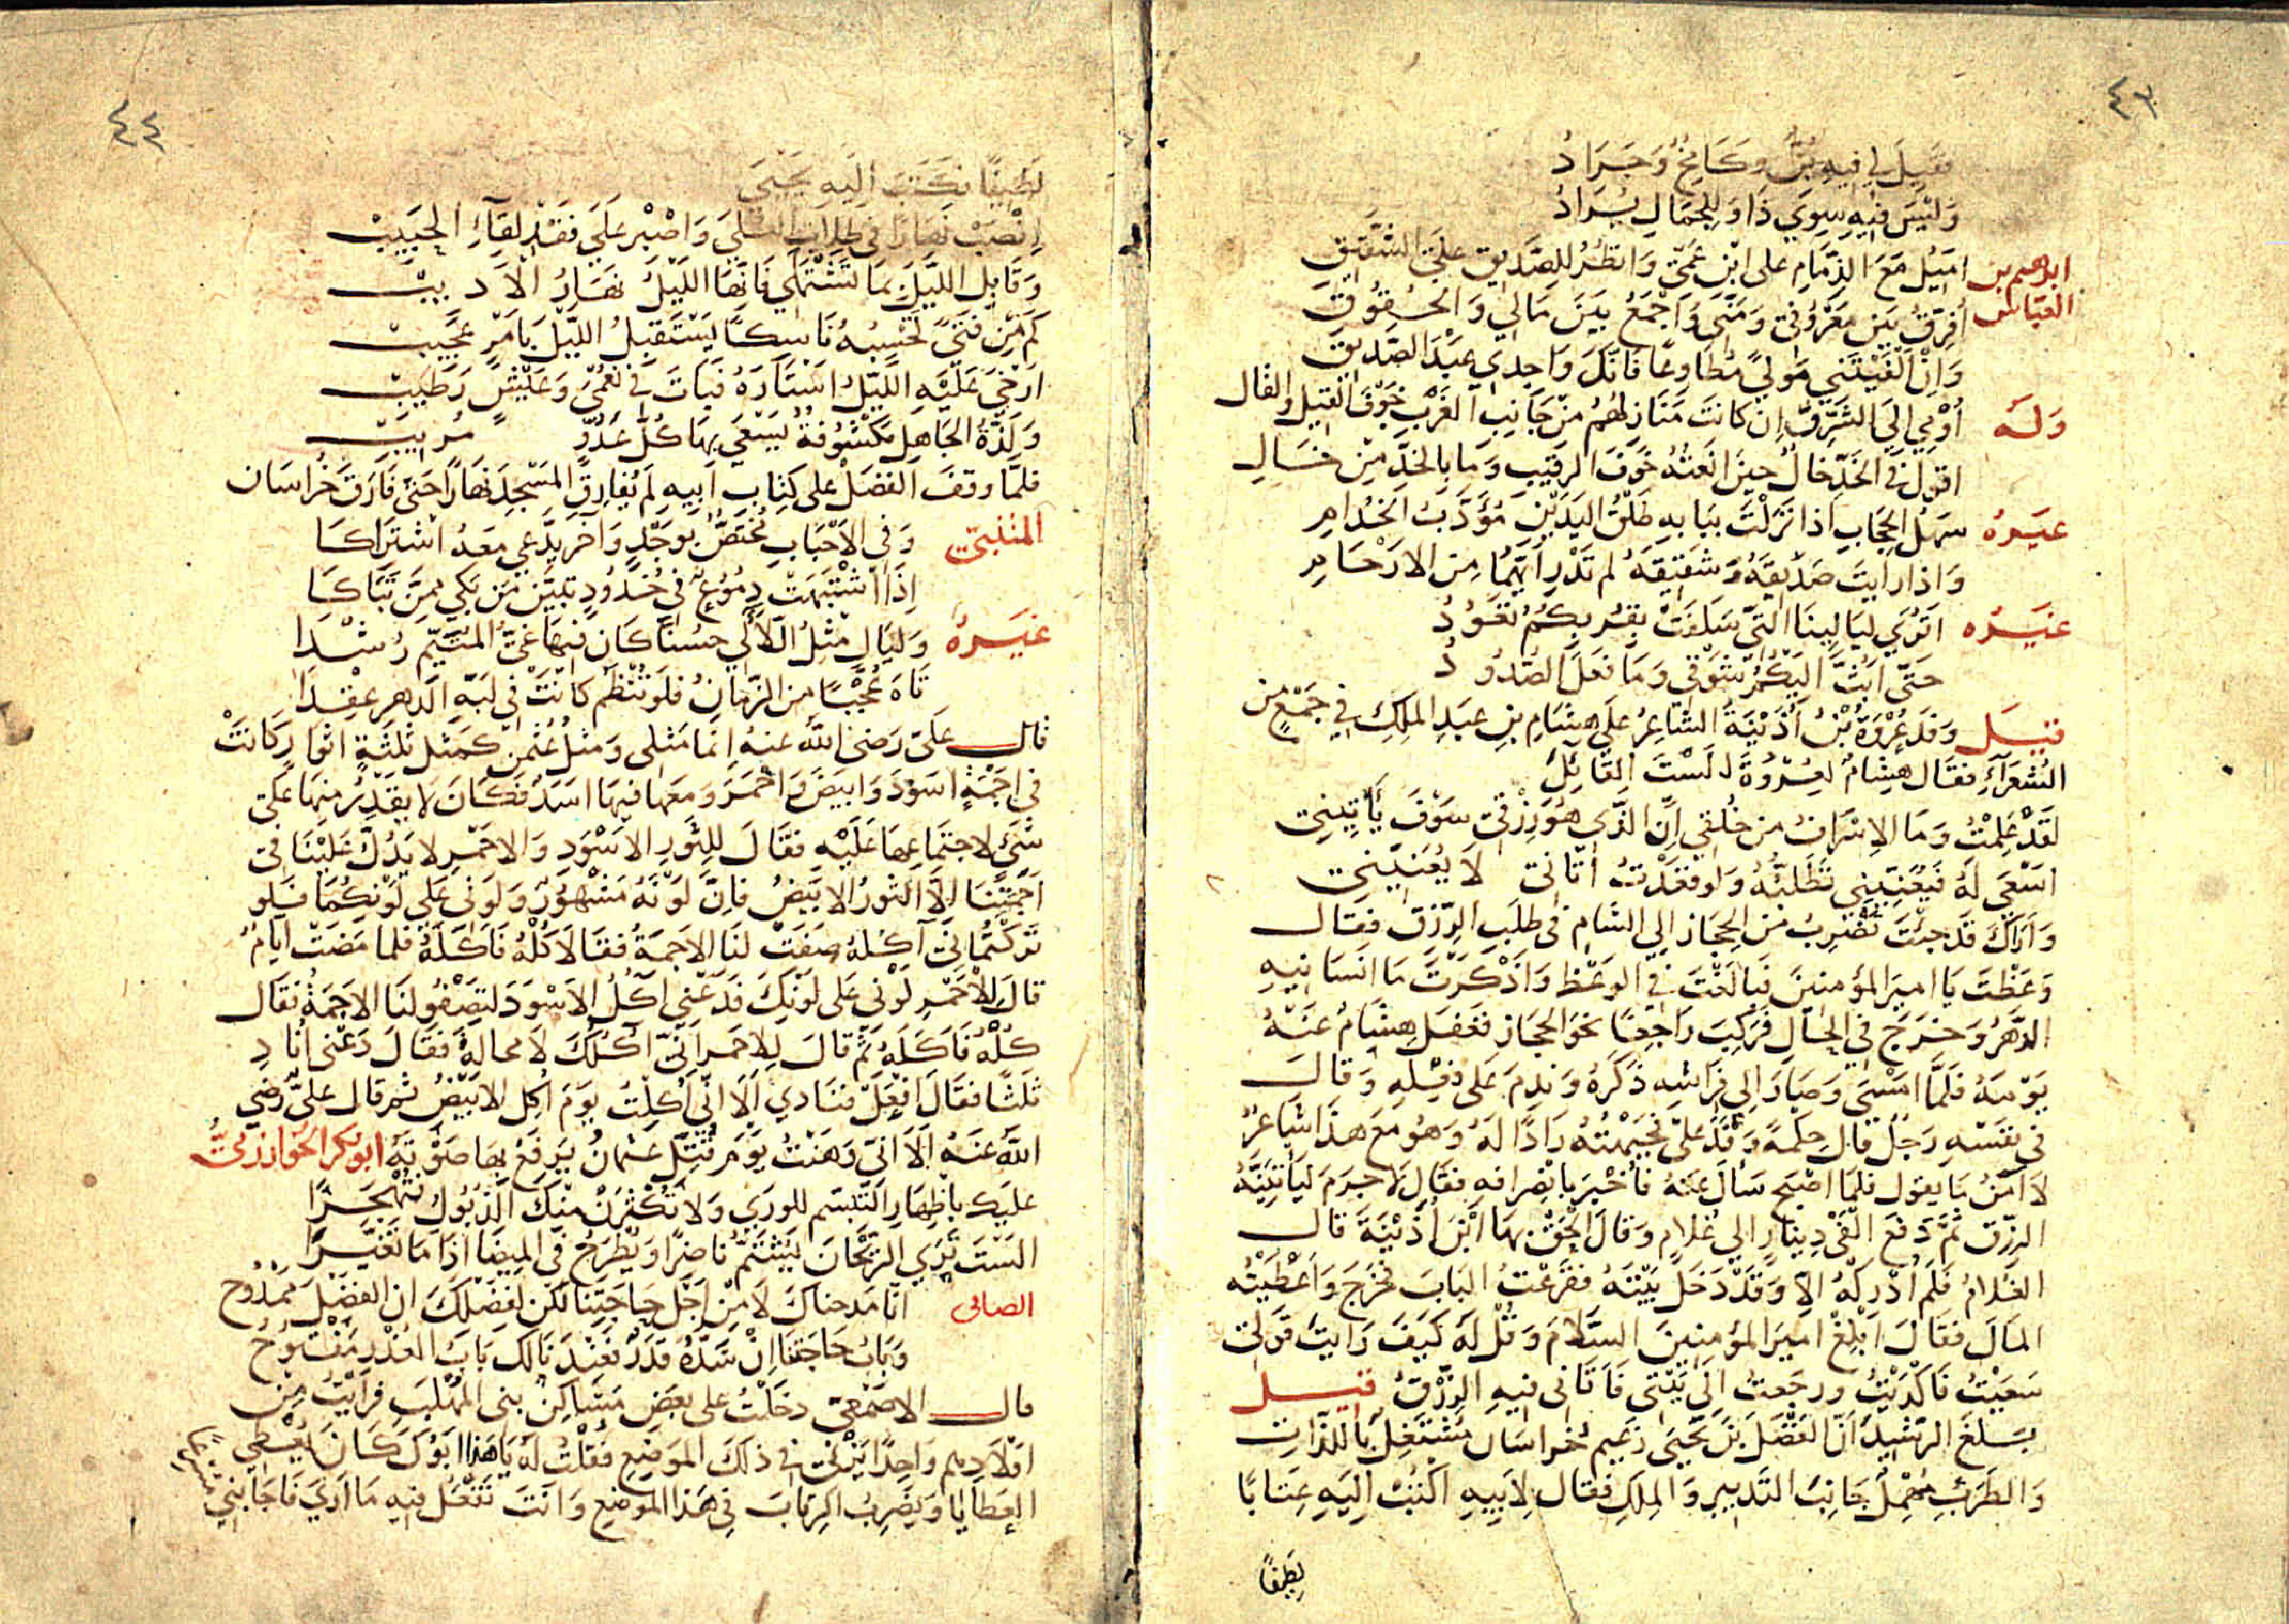 ٤٣
فقيل لي فيه بُنٌّ وكامخٌ وجرادُ
وليس فيه سوي ذا وللجمال يُرادُ
ابرهيم بن العباس اميل مع الذمام على ابن عمي وانظر للصديق علي الشقيق
افرق بين معروفي ومني واجمع بين مالي والحقوق
وان الفيتني مولي مطاوعا فانك واجدي عبد الصديق
وله أومي الي الشرق ان كانت منازلهم من جانب الغرب خوف القيل والقال
اقول في الخد خال حين انعته خوف الرقيب وما بالخد من خال
غيره سهل الحجاب اذا نزلت ببابه طلق اليدين مؤدب الخدام
واذا رايت صديقه وشقيقه لم تدر ايهما من الارحام
غيره اتري ليالينا التي سلفت بقربكم تعود
حتي ابث اليكم شوقي وما فعل الصدود
قيل وفد عروة بن أذينة الشاعر علي هشام بن عبد الملك في جمع من
الشعراء فقال هشام لعروة الست القائل
لقد علمت وما الاسراف من خلقي ان الذي هو رزقي سوف يأتيني
اسعي له فيعنيني تطلبه ولو قعدت اتاني لا يعنيني
واراك قد جئت تضرب من الحجاز الي الشام في طلب الرزق فقال
وعظت يا امير المؤمنين فبالغت في الوعظ واذكرت ما انسانيه
الدهر وخرج في الحال فركب راجعا نحو الحجاز فغفل هشام عنه
يومه فلما امسي وصار الي فراشه ذكره وندم على فعله وقال
في نفسه رجل قال حكمة وفد علي فجبهته رادا له وهو مع هذا شاعر
لا آمن ما يقول فلما اصبح سأل عنه فأخبر بانصرافه فقال لا جرم ليأتينه
الرزق ثم دفع الفي دينار الي غلام وقال الحق بها ابن أذينة قال
الغلام فلم أدركه الا وقد دخل بيته فقرعت الباب فخرج واعطيته
المال فقال ابلغ امير المؤمنين السلام وقل له كيف رايت قولي
سعيت فاكديت ورجعت الي بيتي فاتاني فيه الرزق قيل
بلغ الرشيد ان الفضل بن يحيى زعيم خراسان مشتغل باللذات
والطرب مهمل جانب التدبير والملك فقال لابيه اكتب اليه عتابا
لطيفا
٤٤
لطيفا فكتب اليه يحيى
انصب نهارا في طلاب العلي واصبر علي فقد لقاء الحبيب
وقابل الليل بما تشتهي فانما الليل نهار الاديب
كم من فتي تحسبه ناسكا يستقبل الليل بامر عجيب
ارخي عليه الليل استاره فبات في نعمي وعيش رطيب
ولذة الجاهل مكشوفة يسعي بها كل عدو مريب
فلما وقف الفضل على كتاب ابيه لم يفارق المسجد نهارا حتى فارق خراسان
المتنبي وفي الاحباب مختص بوجد وآخر يدعي معه اشتراكا
اذا اشتبهت دموع في خدود تبين من بكي ممن تباكا
غيره وليال مثل اللآلي حسنا كان فيها غي المتيم رشدا
تاه عجبا من الزمان فلو تنظم كانت في لبة الدهر عقدا
قال علي رضى الله عنه انما مثلي ومثل عثمن كمثل ثلثة اثوار كانت
في اجمة اسود وابيض واحمر ومعها فيها اسد فكان لا يقدر منها على
شيء لاجتماعها عليه فقال للثور الاسود والاحمر لا يدل علينا في
اجمتنا الا الثور الابيض فان لونه مشهور ولوني علي لونكما فلو
تركتماني آكله صفت لنا الاجمة فقالا كله فاكله فلما مضت ايام
قال للاحمر لوني على لونك فدعني آكل الاسود لتصفو لنا الاجمة فقال
كله فاكله ثم قال للاحمر اني آكلك لا محالة فقال دعني اناد
ثلثا فقال افعل فنادي الا اني أكلت يوم اكل الابيض ثم قال علي رضي
الله عنه الا اني وهنت يوم قتل عثمان يرفع بها صوته ابو بكر الخوارزمي
عليك باظهار التبسم للوري ولا تكثرن منك الذبول فتهجرا
الست تري الريحان يشتم ناضرا ويطرح في الميضا اذا ما تغيرا
الصابى انا مدحناك لا من اجل حاجتنا لكن لفضلك ان الفضل ممدوح
وباب حاجتنا ان سده قدر فعندنا لك باب العذر مفتوح
قال الاصمعي دخلت على بعض مساكن بني المهلب فرايت من
اولادهم واحدا يزني في ذلك الموضع فقلت له يا هذا ابوك كان يعطي
العطايا ويضرب الرقاب في هذا الموضع وانت تفعل فيه ما اري فاجابني